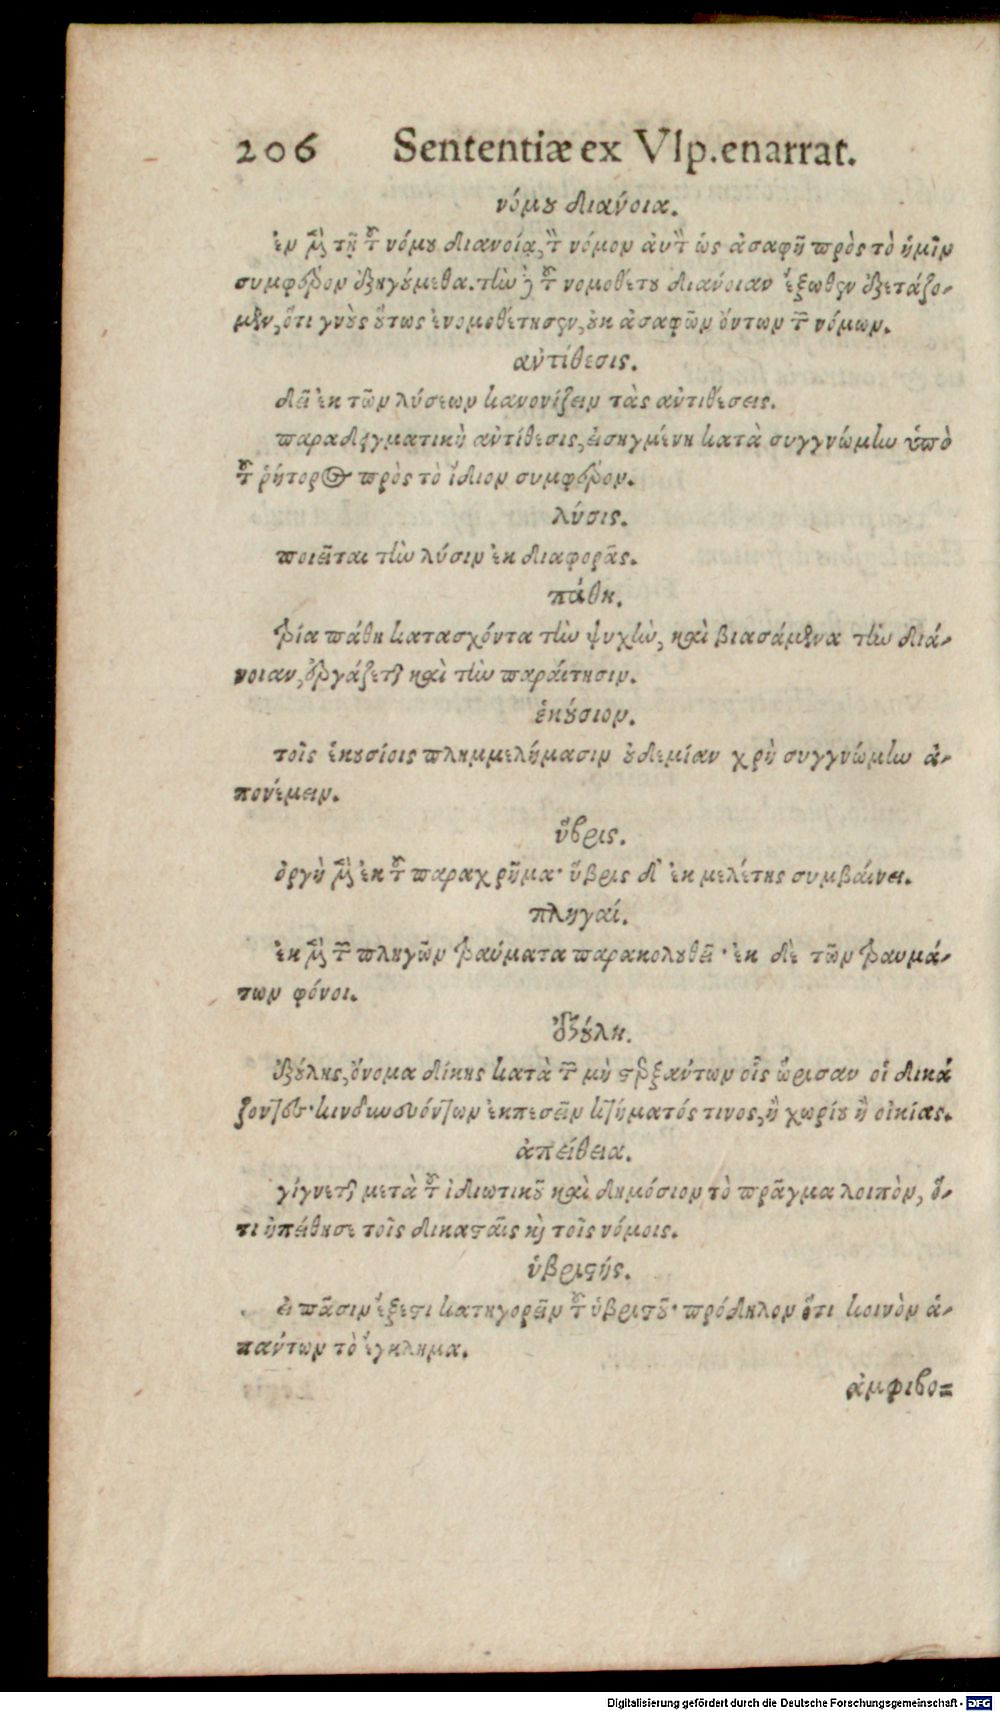 206 Sententiæ ex Vlp. enarrat.
νόμου διανοια.
ἐν μὲν τῇ τοῦ νόμου διανοίᾳ, τὸν νόμον ἀυτὸν ὡς ἀσαφῆ πρὸς τὸ ἡμῖν
συμφέρον ἐξηγούμεθα. τὴν δὲ τοῦ νομοθέτου διάνοιαν ἔξωθεν ἐξετάζο-
μεν, ὅτι γνοὺς οὕτως ἐνομοθέτησεν, οὐκ ἀσαφῶν ὄντων τῶν νόμων.
αὐτίθεσις.
δεῖ ἐκ τῶν λύσεων κανονίζειν τὰς αὐτιθέσεις.
παραδειγματικὴ αὐτίθεσις, εἰσηγμένη κατὰ συγγνώμην ὑπὸ
τοῦ ῥήτορος πρὸς τὸ ἴδιον συμφέρον.
λύσις.
ποιεῖται τὴν λύσιν ἐκ διαφορᾶς.
πάθη.
τρία πάθη κατασχόντα τὴν ψυχὴν, καὶ βιασάμενα τὴν διά-
νοιαν, ἐργάζεται καὶ τὴν παράιτησιν.
ἑκούσιον.
τοῖς ἑκουσίοις πλημμελήμασιν οὐδεμίαν χρὴ συγγνώμην ἀ-
πονέμειν.
ὕβρις.
ὀργὴ μὲν ἐκ τοῦ παραχρῆμα· ὕβρις δ' ἐκ μελέτης συμβάινει.
πληγαί.
ἐκ μὲν τῶν πληγῶν τραύματα παρακολουθεῖ· ἐκ δὲ τῶν τραυμά-
των φόνοι.
ἐξούλη.
ἐξούλης, ὄνομα δίκης κατὰ τῶν μὴ πραξάντων οἷς ὥρισαν οἱ δικά
ζοντες· κινδυνευόντων ἐκπεσεῖν κτήματός τινος, ἢ χωρίου ἢ οἰκίας.
ἀπείθεια.
γίγνεται μετὰ τοῦ ἰδιωτικοῦ καὶ δημόσιον τὸ πρᾶγμα λοιπὸν, ὅ-
τι ἠπείθησε τοῖς δικασταῖς καὶ τοῖς νόμοις.
ὑβριστής.
εἰ πᾶσιν ἔξεστι κατηγορεῖν τοῦ ὑβριστοῦ· πρόδηλον ὅτι κοινὸν ἁ-
παύτων τὸ ἔγκλημα.
ἀμφιβο=
Digitalisierung gefördert durch die Deutsche Forschungsgemeinschaft - DFG